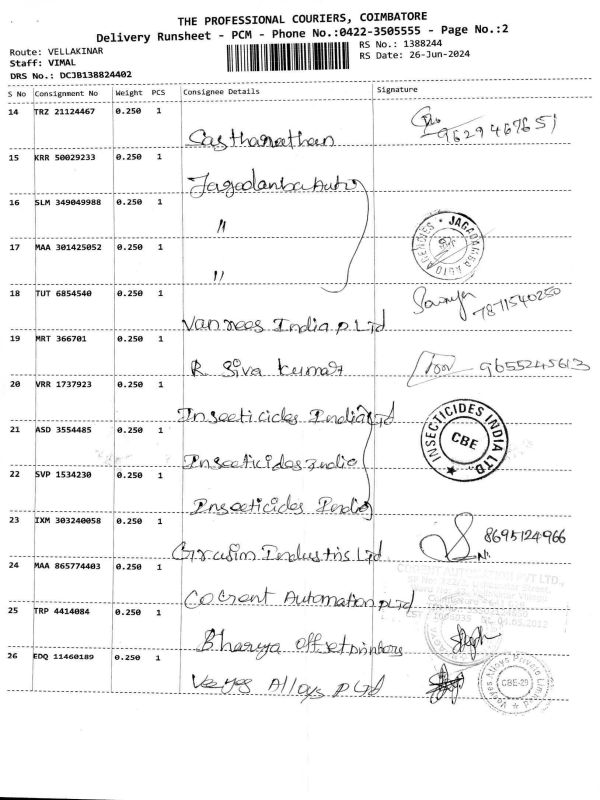 THE PROFESSIONAL COURIERS, COIMBATORE
Delivery Runsheet - PCM - Phone No.:0422-3505555 - Page No.:2
Route: VELLAKINAR
RS No.: 1388244
Staff: VIMAL
RS Date: 26-Jun-2024
DRS No.: DCJB138824402
S No Consignment No Weight PCS Consignee Details Signature
14 TRZ 21124467 0.250 1
9629467651
15 KRR 50029233 0.250 1
Jagadamba Auto
16 SLM 349049988 0.250 1
"
JAGADAMBA AUTO AGENCIES
17 MAA 301425052 0.250 1
"
18 TUT 6854540 0.250 1
Vannees India P Ltd
7871540250
19 MRT 366701 0.250 1
R Siva Kumar
9655245613
20 VRR 1737923 0.250 1
Insecticides India Ltd
21 ASD 3554485 0.250 1
INSECTICIDES INDIA LTD
CBE
Insecticides India
22 SVP 1534230 0.250 1
Insecticides India
23 IXM 303240058 0.250 1
8695124966
Grasim Industris Ltd
24 MAA 865774403 0.250 1
Cogent Automation P Ltd
25 TRP 4414084 0.250 1
Bhavya offset printers
26 EDQ 11460189 0.250 1
Veeyes Alloys P Ltd
Veeyes Alloys Private Limited
CBE-29